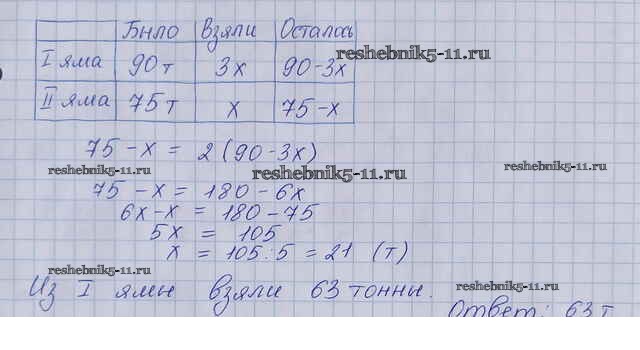 Было Взяли Осталось
I яма 90 т 3х 90-3х
II яма 75 т х 75-х
reshebnik5-11.ru
75 - х = 2 (90 - 3х)
reshebnik5-11.ru reshebnik5-11.ru reshebnik5-11.ru
75 - х = 180 - 6х
6х-х = 180-75
5х = 105
х = 105:5 = 21 (т)
reshebnik5-11.ru
Из I ямы взяли 63 тонны.
reshebnik5-11.ru
Ответ: 63 т